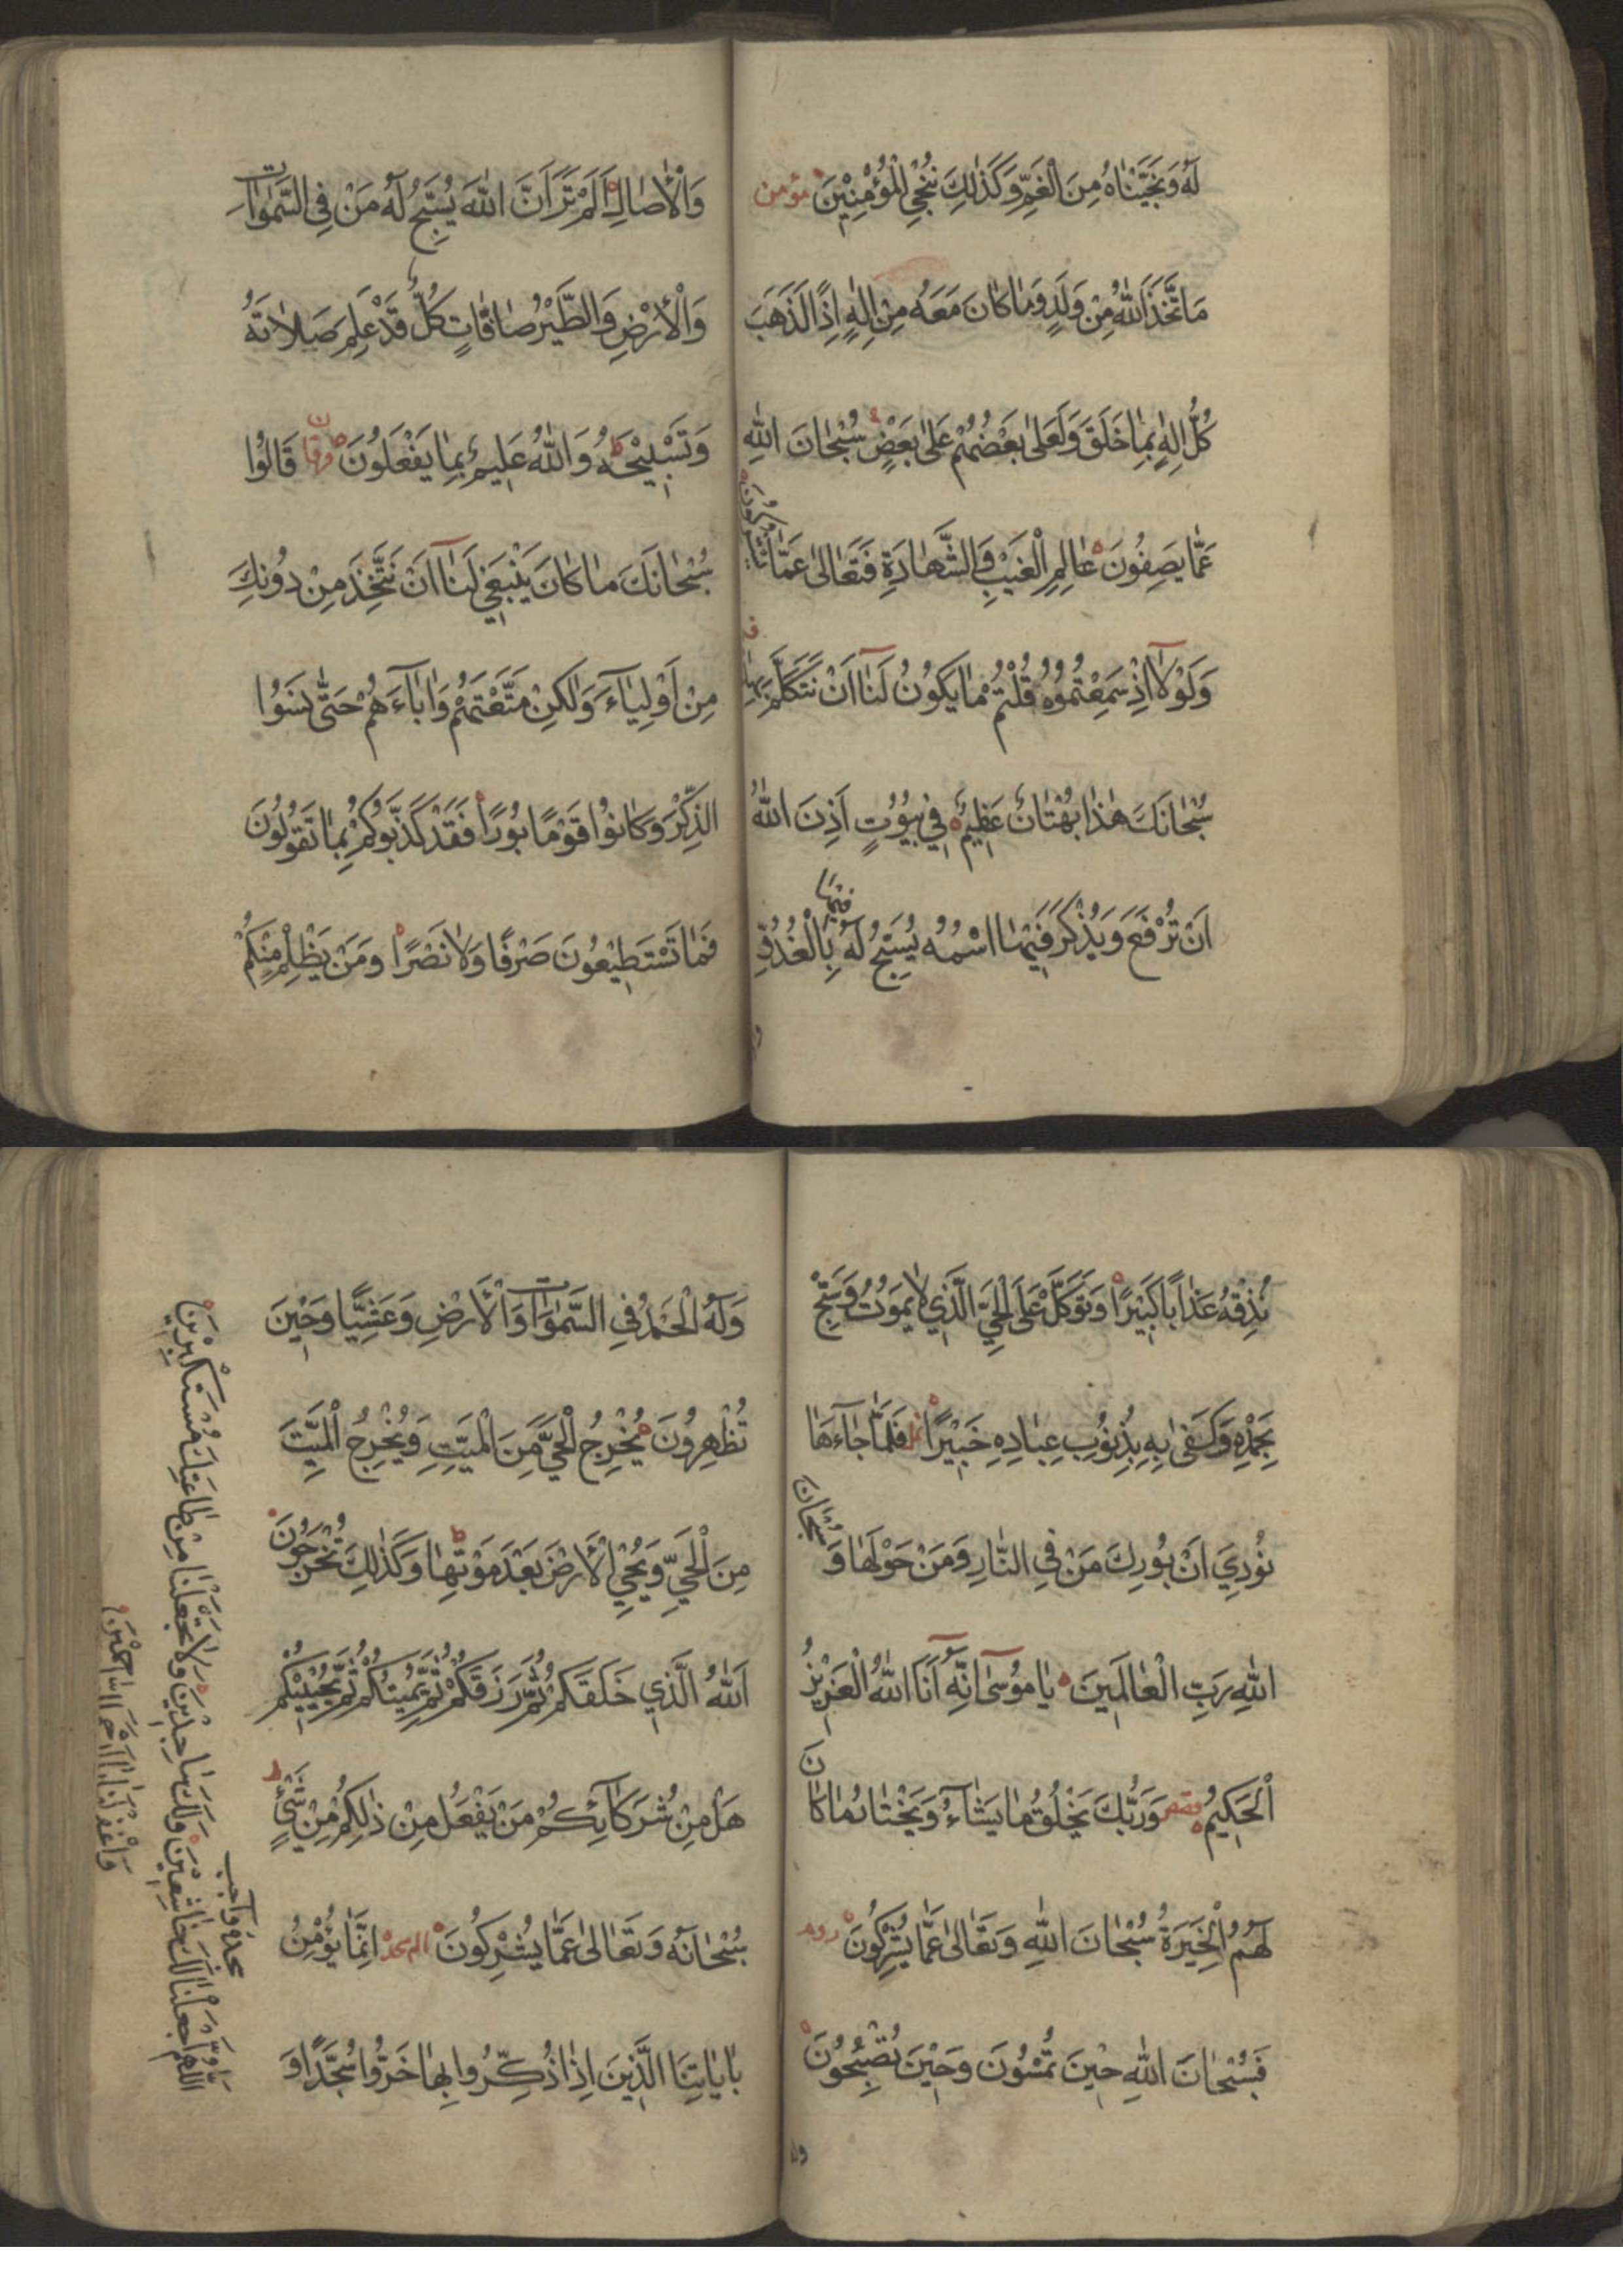 لَهُ وَنَجَّيْنَاهُ مِنَ الْغَمِّ وَكَذٰلِكَ نُنْجِي الْمُؤْمِنِيْنَ مؤمن
مَا تَّخَذَ اللّٰهُ مِنْ وَلَدٍ وَمَا كَانَ مَعَهُ مِنْ اِلٰهٍ اِذًا لَذَهَبَ
كُلُّ اِلٰهٍ بِمَا خَلَقَ وَلَعَلٰى بَعْضُهُمْ عَلٰى بَعْضٍ سُبْحَانَ اللّٰهِ
عَمَّا يَصِفُونَ عَالِمِ الْغَيْبِ وَالشَّهَادَةِ فَتَعَالٰى عَمَّا يُشْرِكُونَ
وَلَوْلَآ اِذْ سَمِعْتُمُوهُ قُلْتُمْ مَا يَكُونُ لَنَآ اَنْ نَتَكَلَّمَ بِهٰذَا
سُبْحَانَكَ هٰذَا بُهْتَانٌ عَظِيْمٌ فِي بُيُوتٍ اَذِنَ اللّٰهُ
اَنْ تُرْفَعَ وَيُذْكَرَ فِيْهَا اسْمُهُ يُسَبِّحُ لَهُ فِيْهَا بِالْغُدُوِّ
وَالْاٰصَالِ اَلَمْ تَرَ اَنَّ اللّٰهَ يُسَبِّحُ لَهُ مَنْ فِي السَّمٰوَاتِ
وَالْاَرْضِ وَالطَّيْرُ صَافَّاتٍ كُلٌّ قَدْ عَلِمَ صَلَاتَهُ
وَتَسْبِيْحَهُ وَاللّٰهُ عَلِيْمٌ بِمَا يَفْعَلُونَ فرقان قَالُوا
سُبْحَانَكَ مَا كَانَ يَنْبَغِي لَنَآ اَنْ نَتَّخِذَ مِنْ دُونِكَ
مِنْ اَوْلِيَآءَ وَلٰكِنْ مَتَّعْتَهُمْ وَاٰبَآءَهُمْ حَتّٰى نَسَوُا
الذِّكْرَ وَكَانُوا قَوْمًا بُورًا فَقَدْ كَذَّبُوكُمْ بِمَا تَقُولُونَ
فَمَا تَسْتَطِيْعُونَ صَرْفًا وَلَا نَصْرًا وَمَنْ يَظْلِمْ مِنْكُمْ
نُذِقْهُ عَذَابًا كَبِيْرًا وَتَوَكَّلْ عَلَى الْحَيِّ الَّذِي لَا يَمُوتُ وَسَبِّحْ
بِحَمْدِهِ وَكَفٰى بِهِ بِذُنُوبِ عِبَادِهِ خَبِيْرًا نمل فَلَمَّا جَآءَهَا
نُودِيَ اَنْ بُورِكَ مَنْ فِي النَّارِ وَمَنْ حَوْلَهَا وَسُبْحَانَ
اللّٰهِ رَبِّ الْعَالَمِيْنَ يَا مُوسٰى اِنَّهُ اَنَا اللّٰهُ الْعَزِيْزُ
الْحَكِيْمُ قصص وَرَبُّكَ يَخْلُقُ مَا يَشَآءُ وَيَخْتَارُ مَا كَانَ
لَهُمُ الْخِيَرَةُ سُبْحَانَ اللّٰهِ وَتَعَالٰى عَمَّا يُشْرِكُونَ روم
فَسُبْحَانَ اللّٰهِ حِيْنَ تُمْسُونَ وَحِيْنَ تُصْبِحُونَ
وَلَهُ الْحَمْدُ فِي السَّمٰوَاتِ وَالْاَرْضِ وَعَشِيًّا وَحِيْنَ
تُظْهِرُونَ يُخْرِجُ الْحَيَّ مِنَ الْمَيِّتِ وَيُخْرِجُ الْمَيِّتَ
مِنَ الْحَيِّ وَيُحْيِي الْاَرْضَ بَعْدَ مَوْتِهَا وَكَذٰلِكَ تُخْرَجُونَ
اَللّٰهُ الَّذِي خَلَقَكُمْ ثُمَّ رَزَقَكُمْ ثُمَّ يُمِيْتُكُمْ ثُمَّ يُحْيِيْكُمْ
هَلْ مِنْ شُرَكَآئِكُمْ مَنْ يَفْعَلُ مِنْ ذٰلِكُمْ مِنْ شَيْءٍ
سُبْحَانَهُ وَتَعَالٰى عَمَّا يُشْرِكُونَ الم سجده اِنَّمَا يُؤْمِنُ
بِاٰيَاتِنَا الَّذِيْنَ اِذَا ذُكِّرُوا بِهَا خَرُّوا سُجَّدًا وَ
سجده واجب
اَللّٰهُمَّ اجْعَلْنَا لَكَ خَاشِعِيْنَ وَلَكَ سَاجِدِيْنَ وَلَا تَجْعَلْنَا مِنْ طَاعَتِكَ مُسْتَكْبِرِيْنَ
وَاغْفِرْ لَنَا يَا اَرْحَمَ الرَّاحِمِيْنَ